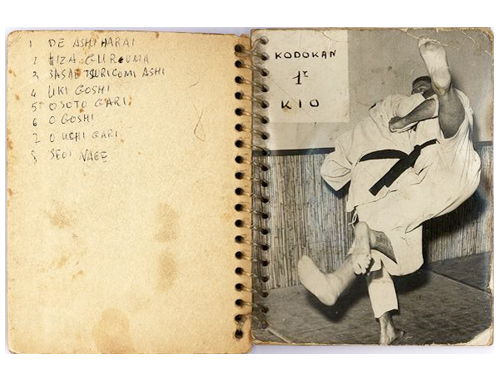 1 DE ASHI HARAI
2 HIZA GURUMA
3 SASAE TSURICOMI ASHI
4 UKI GOSHI
5 OSOTO GARI
6 O GOSHI
7 O UCHI GARI
8 SEOI NAGE
KODOKAN
1º
KIO